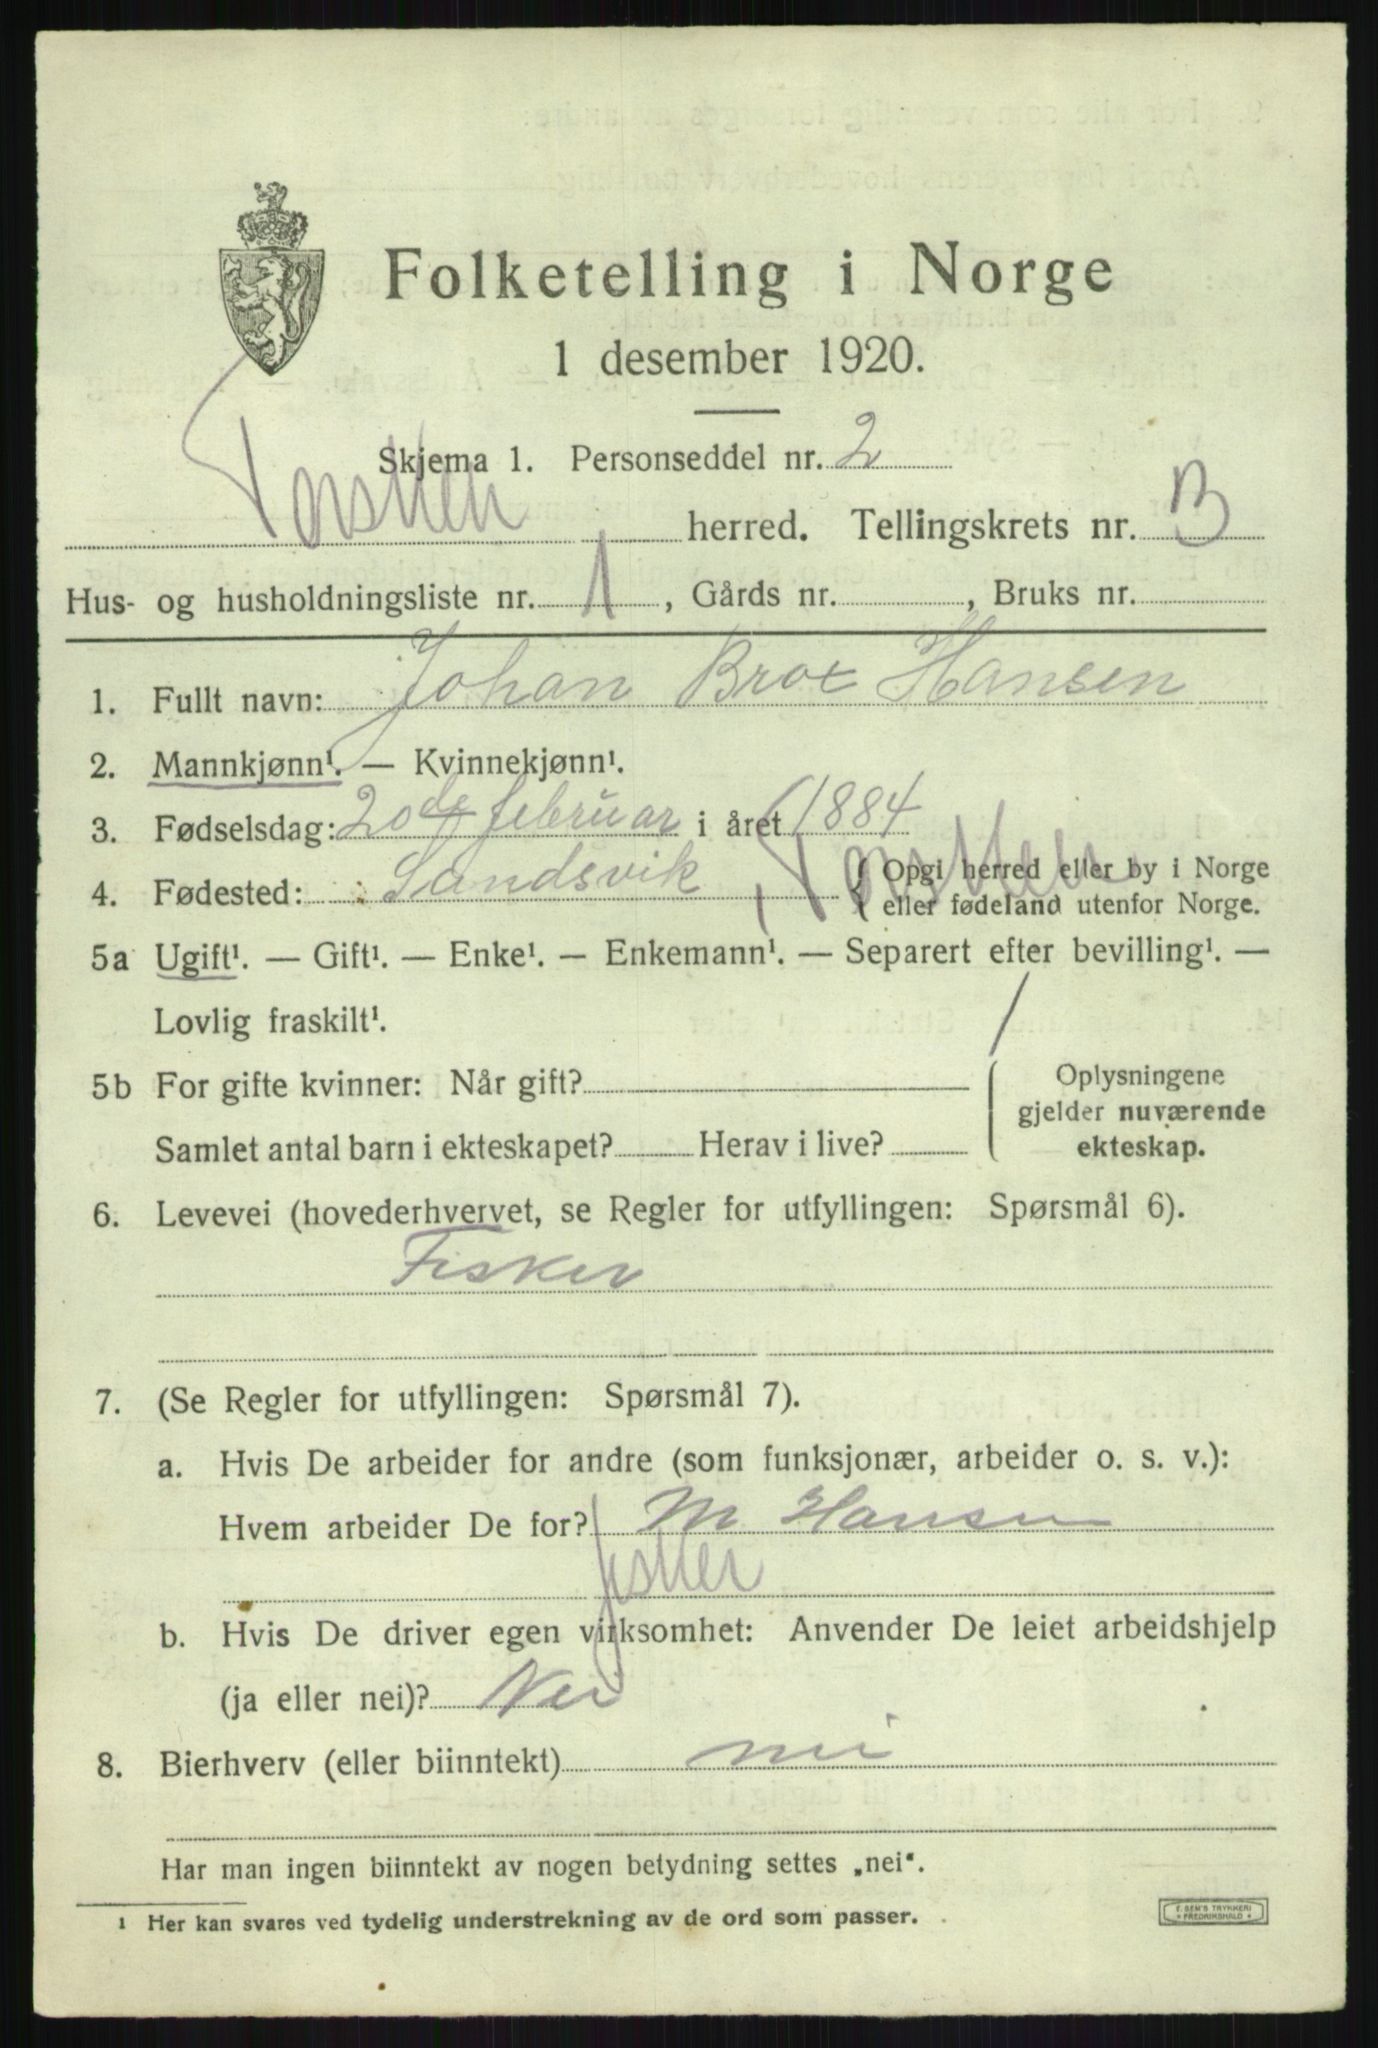 Folketelling i Norge
1 desember 1920.
Skjema 1. Personseddel nr. 2
Torsken herred. Tellingskrets nr. 13
Hus- og husholdningsliste nr. 1, Gårds nr. , Bruks nr.
1. Fullt navn: Johan Brox Hansen
2. Mannkjønn¹. — Kvinnekjønn¹.
3. Fødselsdag: 20de februar i året 1884
4. Fødested: Sandsvik Torsken { Opgi herred eller by i Norge
eller fødeland utenfor Norge.
5a Ugift¹. — Gift¹. — Enke¹. — Enkemann¹. — Separert efter bevilling¹. —
Lovlig fraskilt¹.
5b For gifte kvinner: Når gift?
Samlet antal barn i ekteskapet? Herav i live?
Oplysningene
gjelder nuværende
ekteskap.
6. Levevei (hovederhvervet, se Regler for utfyllingen: Spørsmål 6).
Fisker
7. (Se Regler for utfyllingen: Spørsmål 7).
a. Hvis De arbeider for andre (som funksjonær, arbeider o. s. v.):
Hvem arbeider De for? M Hansen
fisker
b. Hvis De driver egen virksomhet: Anvender De leiet arbeidshjelp
(ja eller nei)? Nei
8. Bierhverv (eller biinntekt) nei
Har man ingen biinntekt av nogen betydning settes „nei“.
1 Her kan svares ved tydelig understrekning av de ord som passer.
F. SEM'S TRYKKERI
* FREDRIKSHALD *